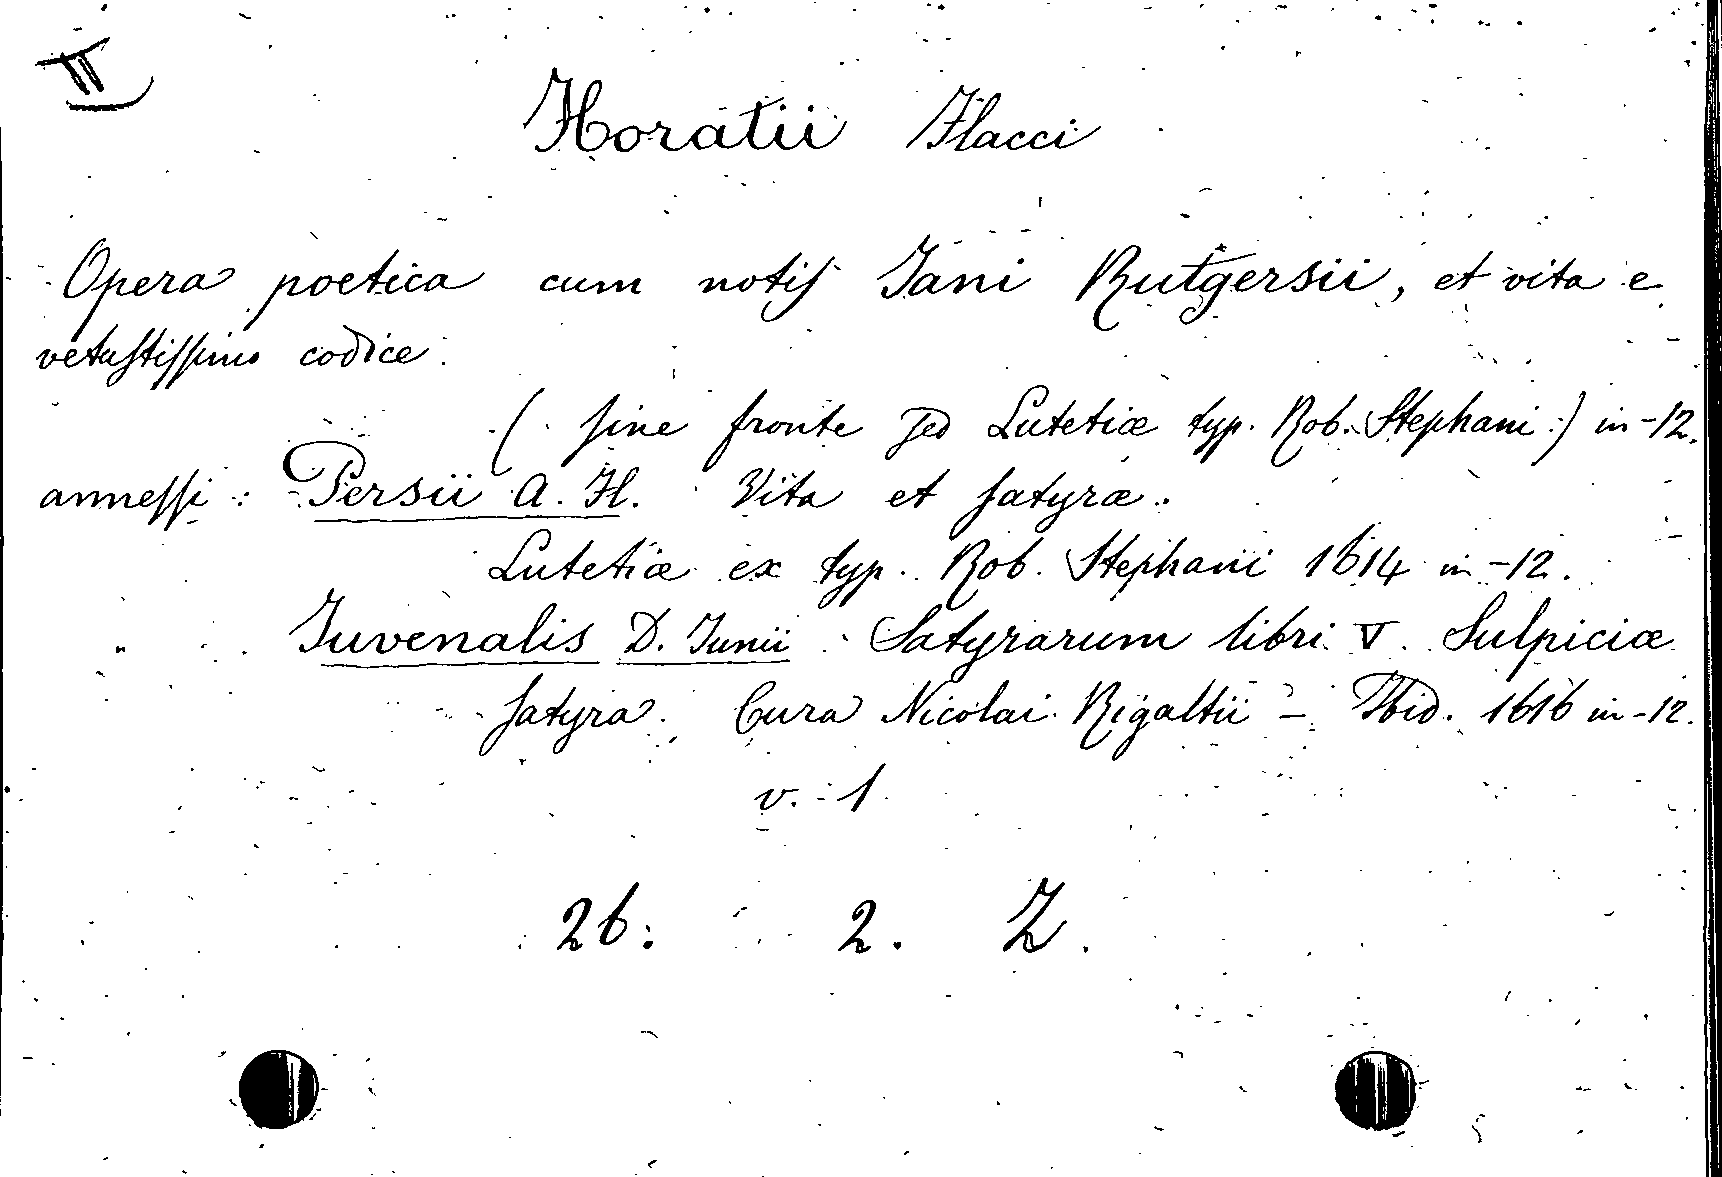 II
Horatii Flacci
Opera poetica cum notis Jani Rutgersii, et vita e
vetustissimo codice.
(sine fronte sed Lutetiæ typ. Rob. Stephani) in-12.
annessi: Persii A. Fl. Vita et satyræ.
Lutetiæ ex typ. Rob. Stephani 1614 in-12.
" Juvenalis D. Junii Satyrarum libri V. Sulpiciæ
satyra. Cura Nicolai Rigaltii - Ibid. 1616 in-12.
v. 1
26. 2. Z.